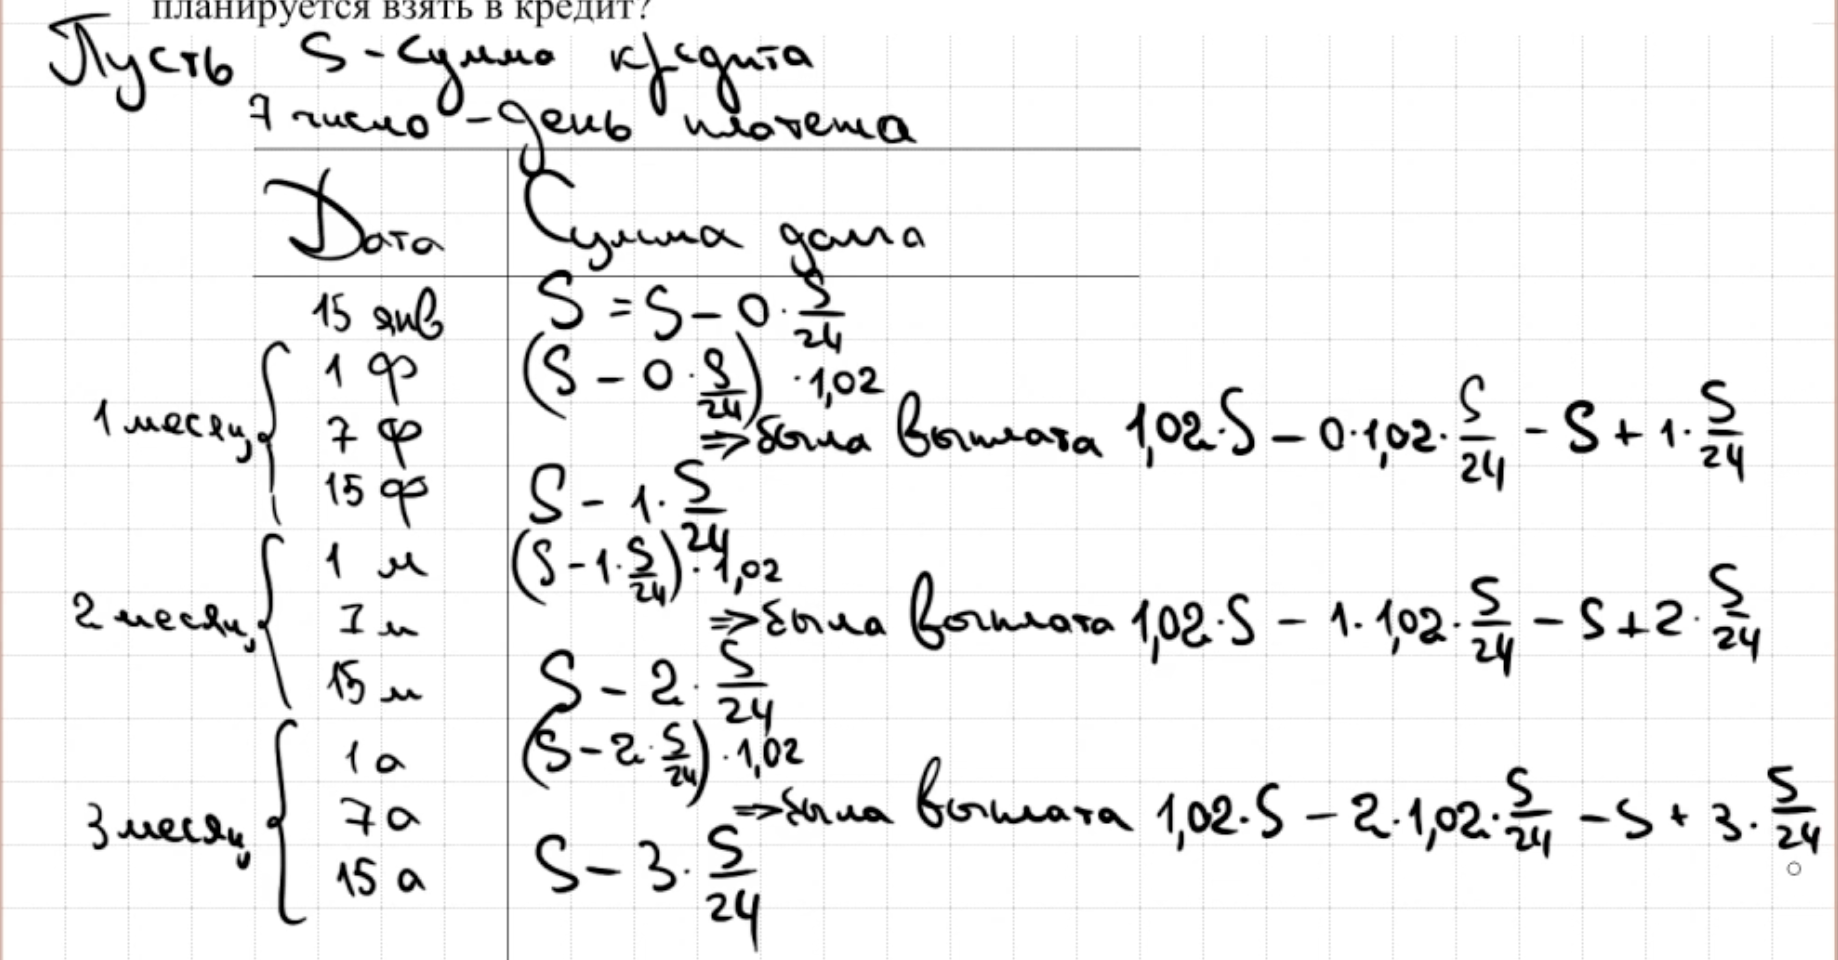 планируется взять в кредит?
Пусть S - сумма кредита
7 число - день платежа
Дата Сумма долга
15 янв S = S - 0 · S/24
1 ф (S - 0 · S/24) · 1,02
1 месяц 7 ф ⇒ была выплата 1,02 · S - 0 · 1,02 · S/24 - S + 1 · S/24
15 ф S - 1 · S/24
1 м (S - 1 · S/24) · 1,02
2 месяц 7 м ⇒ была выплата 1,02 · S - 1 · 1,02 · S/24 - S + 2 · S/24
15 м S - 2 · S/24
1 а (S - 2 · S/24) · 1,02
3 месяц 7 а ⇒ была выплата 1,02 · S - 2 · 1,02 · S/24 - S + 3 · S/24
15 а S - 3 · S/24